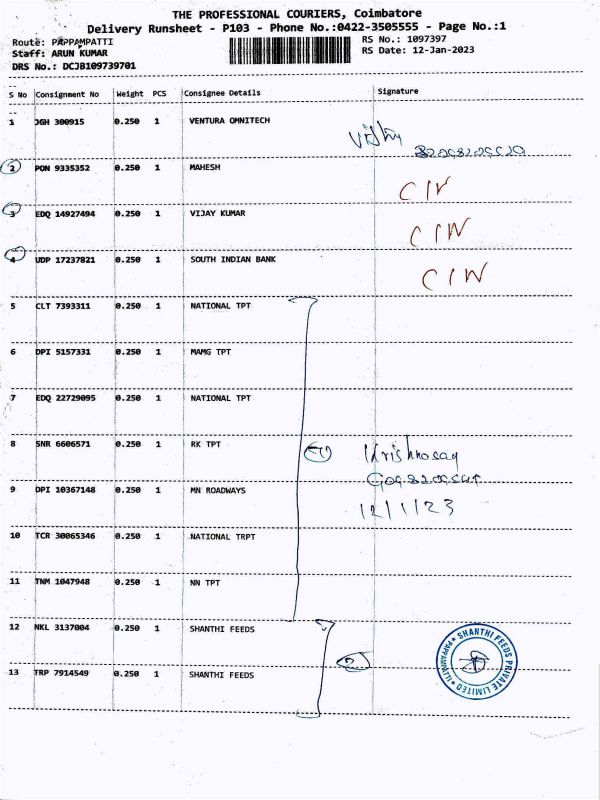 THE PROFESSIONAL COURIERS, Coimbatore
Delivery Runsheet - P103 - Phone No.:0422-3505555 - Page No.:1
Route: PAPPAMPATTI RS No.: 1097397
Staff: ARUN KUMAR RS Date: 12-Jan-2023
DRS No.: DCJB109739701
S No Consignment No Weight PCS Consignee Details Signature
1 JGH 300915 0.250 1 VENTURA OMNITECH
2 PON 9335352 0.250 1 MAHESH
CIN
3 EDQ 14927494 0.250 1 VIJAY KUMAR
CIN
4 UDP 17237821 0.250 1 SOUTH INDIAN BANK
CIN
5 CLT 7393311 0.250 1 NATIONAL TPT
6 DPI 5157331 0.250 1 MAMG TPT
7 EDQ 22729095 0.250 1 NATIONAL TPT
8 SNR 6606571 0.250 1 RK TPT
9 DPI 10367148 0.250 1 MN ROADWAYS
12/1/23
10 TCR 30065346 0.250 1 NATIONAL TRPT
11 TNM 1047948 0.250 1 NN TPT
12 NKL 3137004 0.250 1 SHANTHI FEEDS
SHANTHI FEEDS PRIVATE LIMITED
13 TRP 7914549 0.250 1 SHANTHI FEEDS